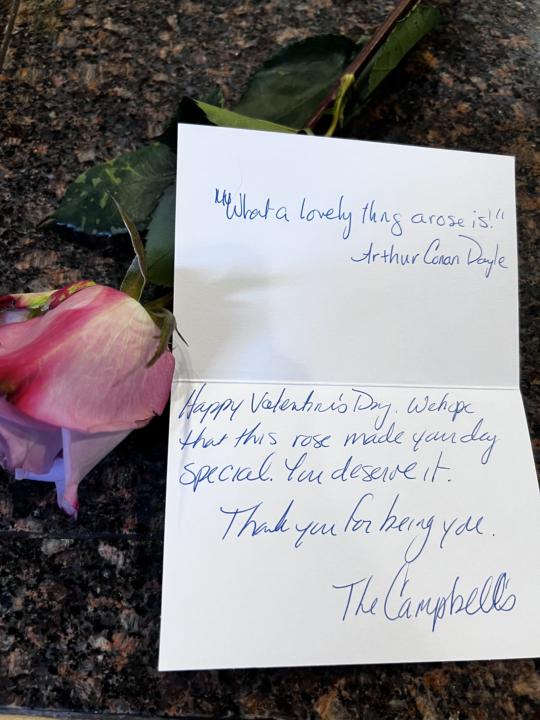 "What a lovely thing a rose is!"
Arthur Conan Doyle
Happy Valentine's Day. We hope
that this rose made your day
special. You deserve it.
Thank you for being you.
The Campbells